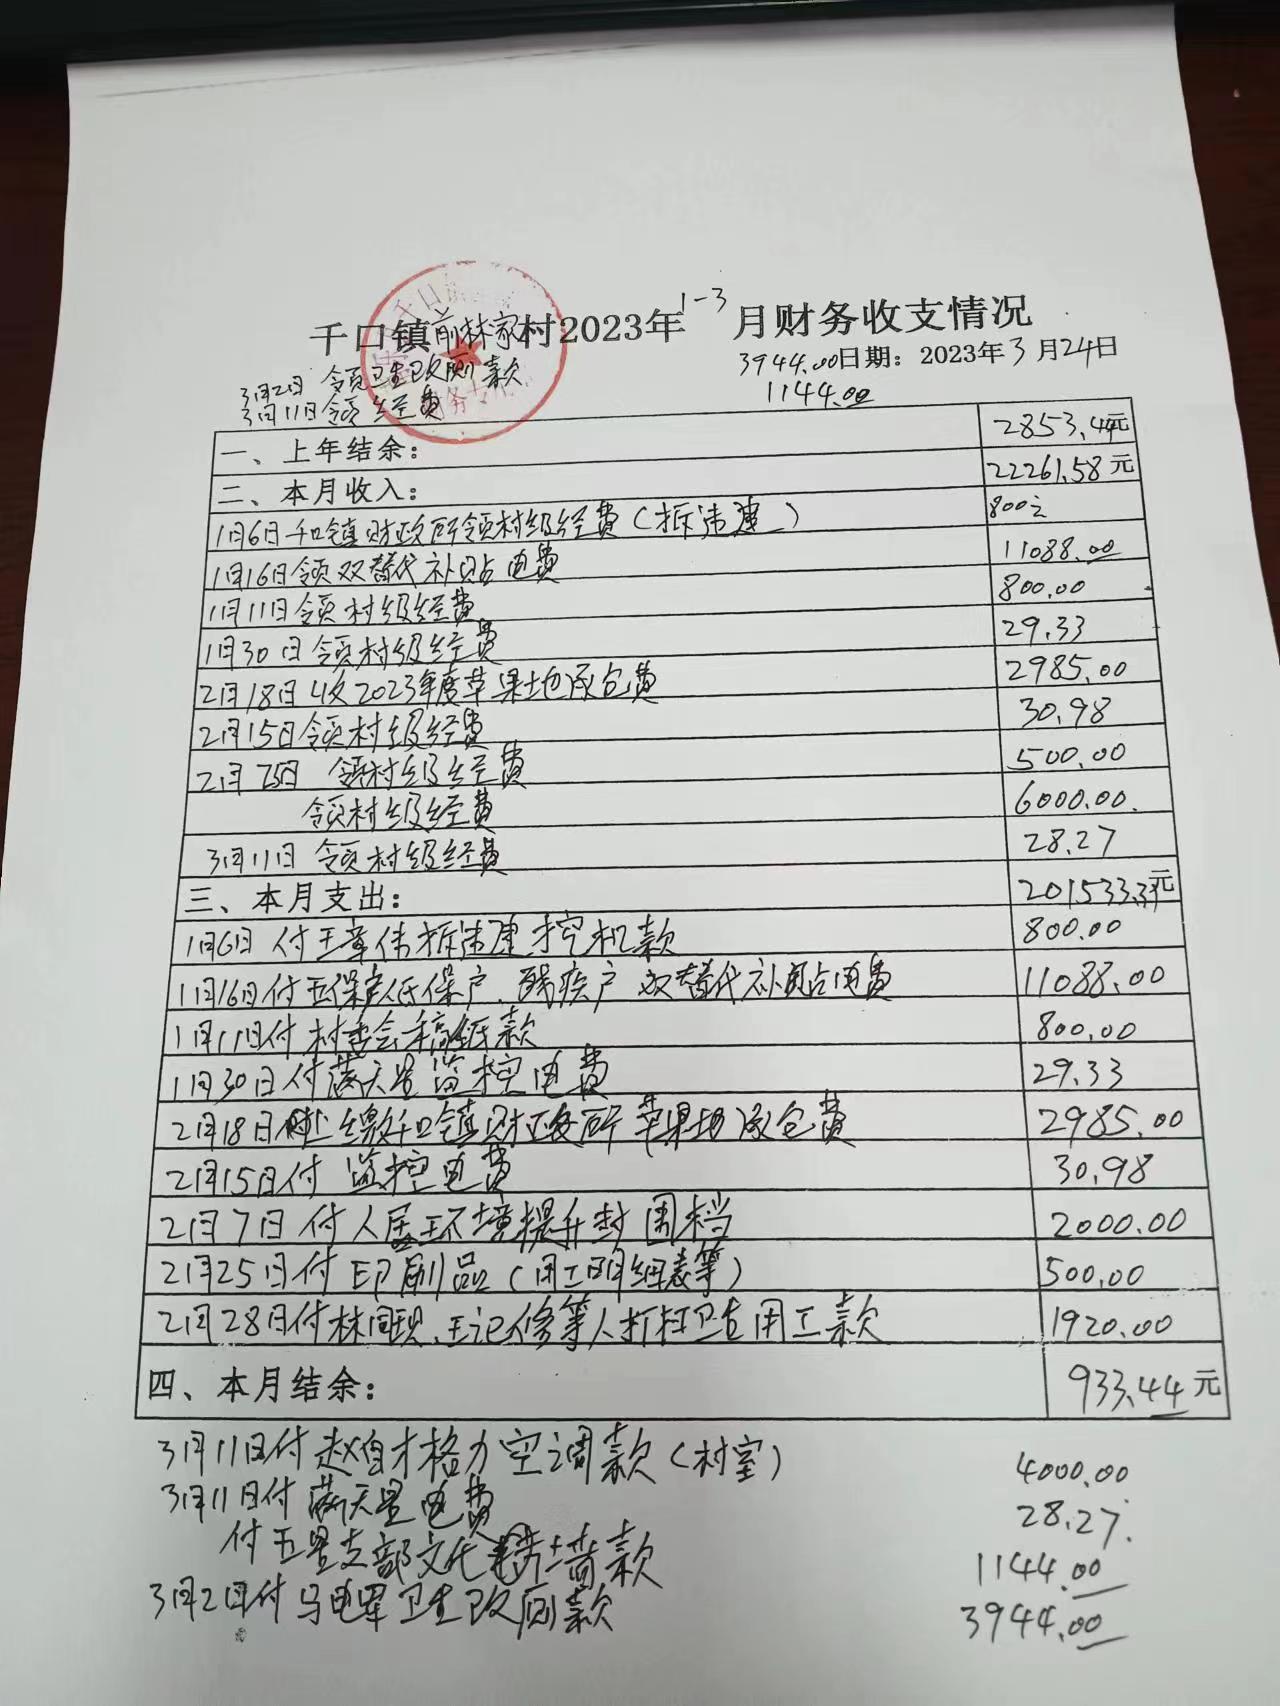 千口镇前林家村2023年1-3月财务收支情况
3944.00日期：2023年3月24日
3月2日 领卫生改厕款
1144.00
3月11日领 经费
一、上年结余： 2853.44元
二、本月收入： 22261.58元
1月6日千口镇财政所领村级经费（拆违建） 800元
1月16日领双替代补贴电费 11088.00
1月11日领村级经费 800.00
1月30日领村级经费 29.33
2月18日收2023年度苹果地承包费 2985.00
2月15日领村级经费 30.98
2月25日 领村级经费 500.00
领村级经费 6000.00
3月11日 领村级经费 28.27
三、本月支出： 201533.31元
1月6日 付王章伟拆违建挖机款 800.00
1月16日付五保户低保户、残疾户 双替代补贴电费 11088.00
1月11日付 村委会 款 800.00
1月30日付满天星监控电费 29.33
2月18日 上缴千口镇财政所苹果地承包费 2985.00
2月15日付 监控电费 30.98
2月7日 付人居环境提升封围档 2000.00
2月25日付 印刷品（用工明细表等） 500.00
2月28日付林国现、王记修等人打扫卫生用工款 1920.00
四、本月结余： 933.44元
3月11日付赵自才格力空调款（村室） 4000.00
3月11日付 满天星电费 28.27
付五星支部文化 墙款 1144.00
3月2日付 马电军卫生改厕款 3944.00